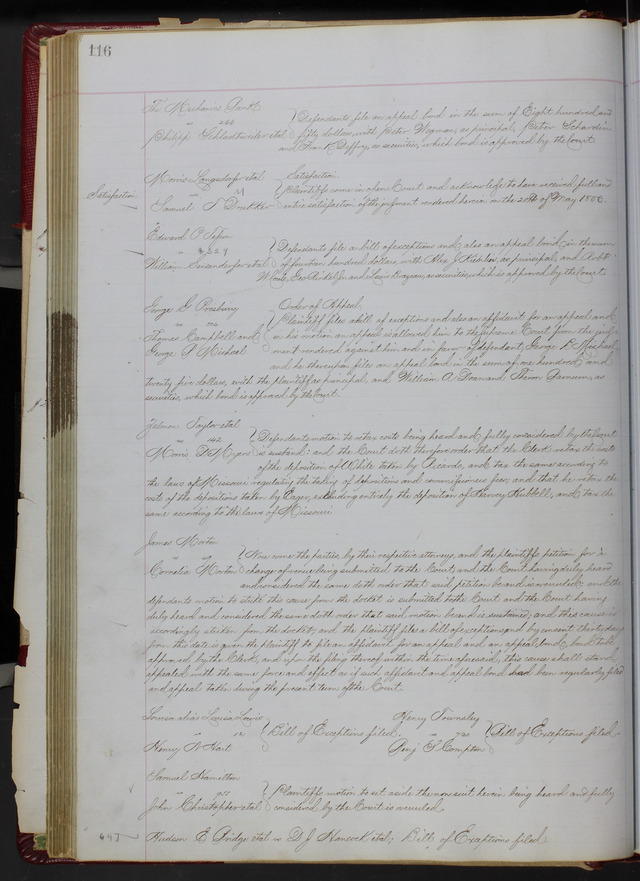 116
The Mechanics Bank
Philipp Schladtweiler etal } Defendants file an appeal bond in the sum of Eight hundred and
fifty dollars, with Peter as principal, Peter Schardin
and as securities, which bond is approved by the Court
Satisfaction
Morris Langsdorf etal Satisfaction
Samuel S Drukker } Plaintiffs come in open Court and acknowledge to have received full and
entire satisfaction of the judgment rendered herein on the of May
Edward C
William etal } Defendants file a bill of exceptions and also an appeal bond, in the sum
of hundred dollars, with as principal, and Robt
and Louis as securities, which is approved by the Court
George G Presbury Order of Appeal.
Thomas Campbell and
George P Michael } Plaintiff files a bill of exceptions and also an affidavit for an appeal and
on his motion an appeal is allowed him to the Supreme Court from the judg-
ment rendered against him and in favor of defendant, George P Michael
and he thereupon files an appeal bond in the sum of one hundred and
twenty five dollars, with the plaintiff as principal, and William A and as
securities, which bond is approved by the Court.
Taylor etal
142
Morris D Myers } Defendants motion to retax costs being heard and fully considered by the Court
is sustained; and the Court doth therefore order that the Clerk retax the costs
of the deposition of White taken by Ricardo, and tax the same according to
the laws of Missouri regulating the taking of depositions and commissioners fees, and that he retax the
costs of the depositions taken by Eager, excluding entirely the deposition of Harvey Hubbell, and tax the
same according to the laws of Missouri
James Morton
Cornelia Morton } Now come the parties, by their respective attorneys, and the plaintiffs petition for a
change of venue being submitted to the Court, and the Court having duly heard
and considered the same doth order that said petition be and is overruled; and the
defendants motion to strike this cause from the docket is submitted to the Court and the Court having
duly heard and considered the same doth order that said motion be and is sustained; and this cause is
accordingly stricken from the docket; and the plaintiff files a bill of exceptions and by consent thirty days
from this date is given the plaintiff to file an affidavit for an appeal and an appeal bond, bond to be
approved by the Clerk, and upon the filing thereof within the time aforesaid, this cause shall stand
appealed with the same force and effect as if such affidavit and appeal bond had been regularly filed
and appeal taken during the present term of the Court.
Louisa alias Louisa Lewis
Henry N Hart } Bill of Exceptions filed.
Henry Townsley
Benj F Compton } Bill of Exceptions filed.
Samuel Hamilton
John Christopher etal } Plaintiffs motion to set aside the nonsuit herein being heard and fully
considered by the Court is overruled.
Hudson E Bridge etal vs D J Hancock etal; Bill of Exceptions filed